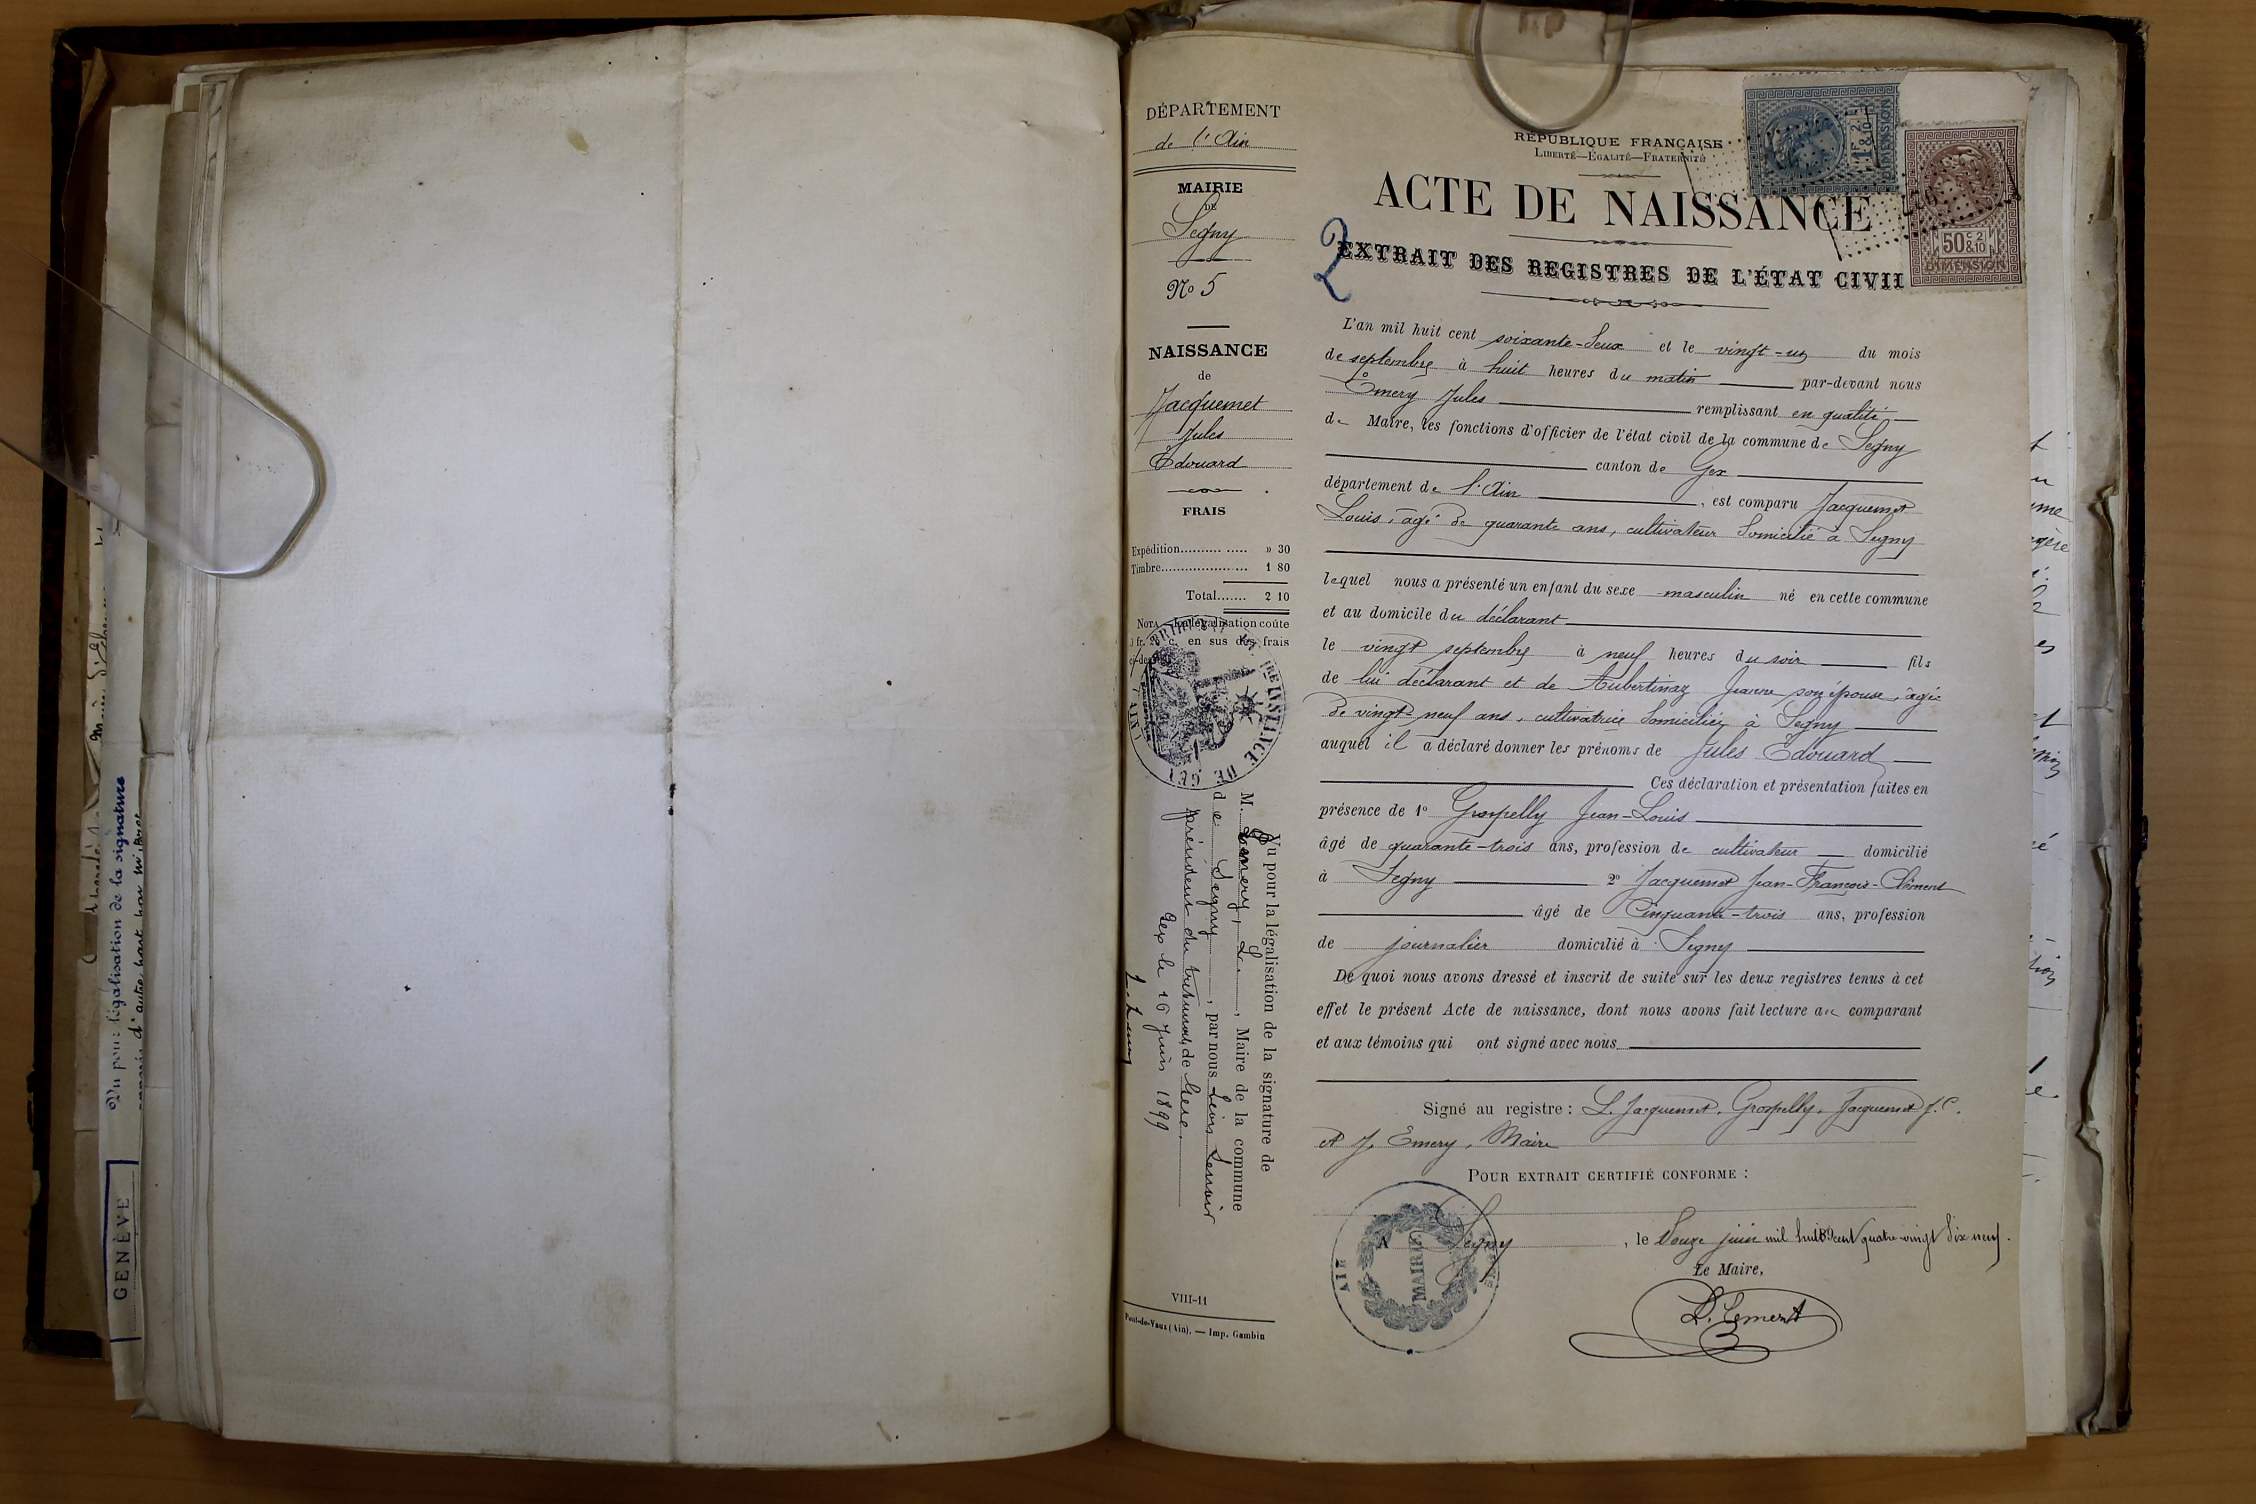 DÉPARTEMENT
de l'Ain
MAIRIE
DE
Segny
No 5
NAISSANCE
de
Jacquemet
Jules
Edouard
FRAIS
Expédition.......... ..... » 30
Timbre................... ... 1 80
Total....... 2 10
NOTA La légalisation coûte
fr. c. en sus des frais
TRIBUNAL DE 1RE INSTANCE DE GEX (AIN)
Vu pour la légalisation de la signature de
M. Emery, , Maire de la commune
de Segny , par nous Léon Lenoir
président du tribunal de Gex.
Gex le 16 Juin 1899
VIII-11
Pont-de-Vaux (Ain). — Imp. Gambin
RÉPUBLIQUE FRANÇAISE
LIBERTÉ—ÉGALITÉ—FRATERNITÉ
1F 2 &10 DIMENSION
50c 2 &10
DIMENSION
ACTE DE NAISSANCE
2
EXTRAIT DES REGISTRES DE L'ÉTAT CIVIL
L'an mil huit cent soixante-deux et le vingt-un du mois
de septembre à huit heures du matin par-devant nous
Emery Jules remplissant en qualité
de Maire, les fonctions d'officier de l'état civil de la commune de Segny
canton de Gex
département de l'Ain , est comparu Jacquemet
Louis, âgé de quarante ans, cultivateur domicilié à Segny
lequel nous a présenté un enfant du sexe masculin né en cette commune
et au domicile du déclarant
le vingt septembre à neuf heures du soir fils
de lui déclarant et de Aubertinaz Jeanne son épouse, âgée
de vingt-neuf ans, cultivatrice domiciliée à Segny
auquel il a déclaré donner les prénoms de Jules Edouard
Ces déclaration et présentation faites en
présence de 1o Grospelly Jean-Louis
âgé de quarante-trois ans, profession de cultivateur domicilié
à Segny 2o Jacquemet Jean-François-Clément
âgé de Cinquante-trois ans, profession
de journalier domicilié à Segny
De quoi nous avons dressé et inscrit de suite sur les deux registres tenus à cet
effet le présent Acte de naissance, dont nous avons fait lecture au comparant
et aux témoins qui ont signé avec nous
Signé au registre : L. Jacquemet, Grospelly, Jacquemet J. C.
et J. Emery, Maire
POUR EXTRAIT CERTIFIÉ CONFORME :
A Segny , le Douze juin mil huit cent quatre-vingt dix neuf.
MAIRIE
AIN
Le Maire,
Vu pour légalisation de la signature
GENÈVE